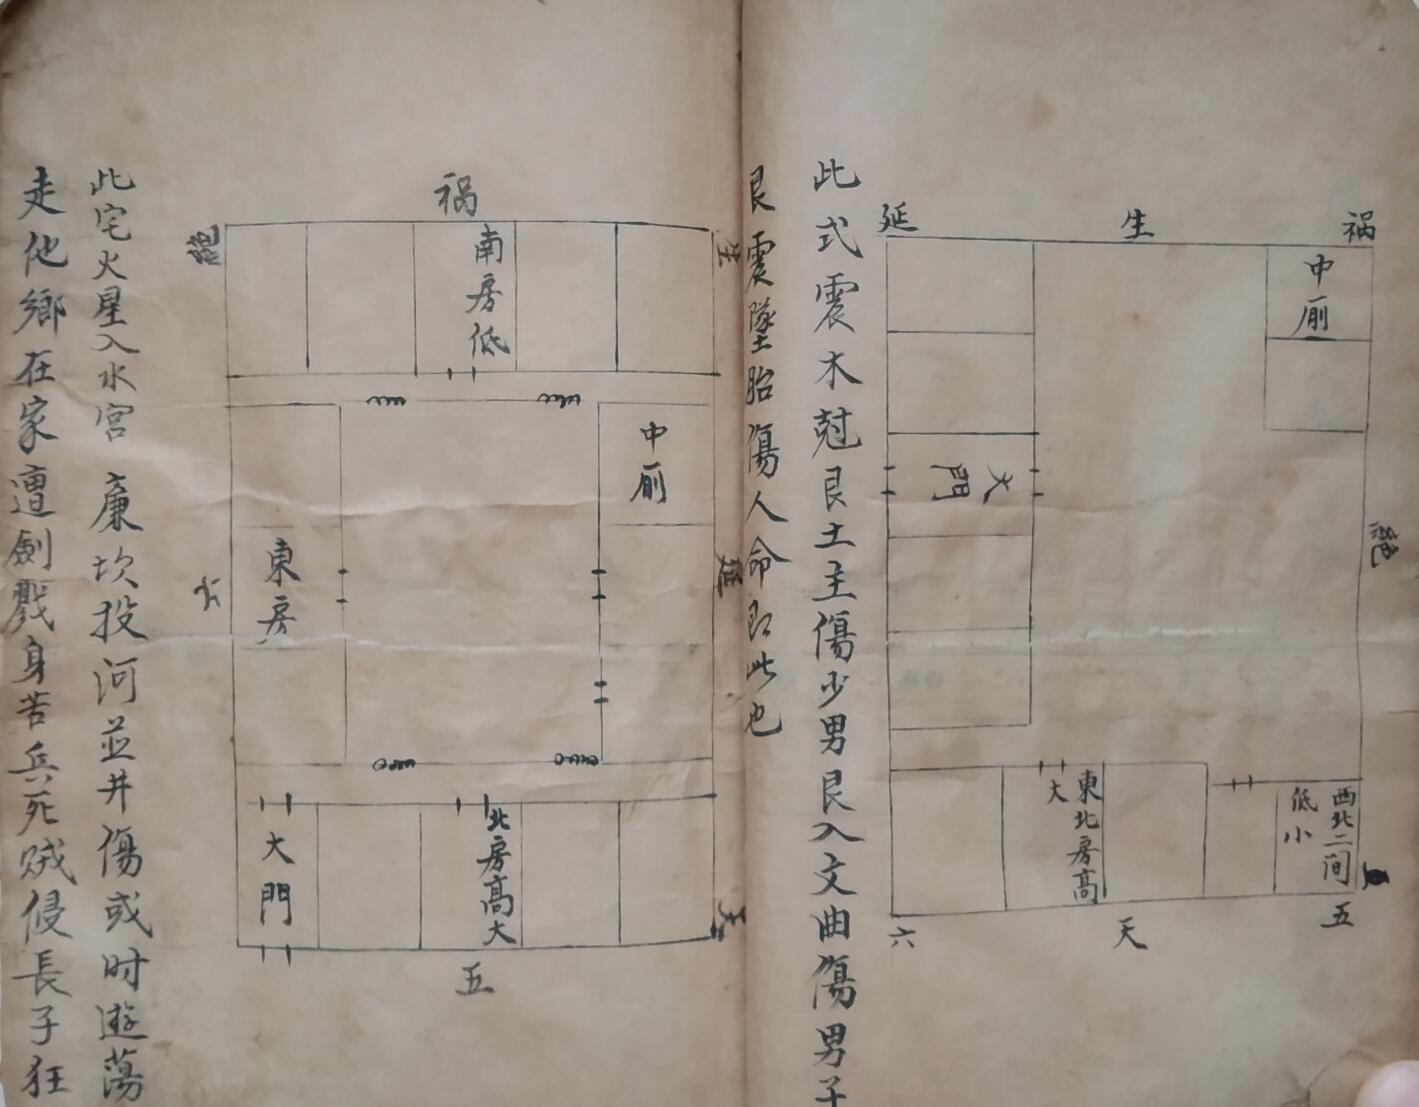 此式震木尅艮土主傷少男艮入文曲傷男子
艮震墜胎傷人命即此也
延
生
祸
中厠
大門
絶
東北房高
大
西北二间
低小
六
天
五
祸
絕
生
南房低
中厠
東房
延
六
大門
北房高大
天
五
此宅火星入水宫 廉坎投河並井傷或时遊蕩
走他鄉在家遭劍戮身苦兵死贼侵長子狂